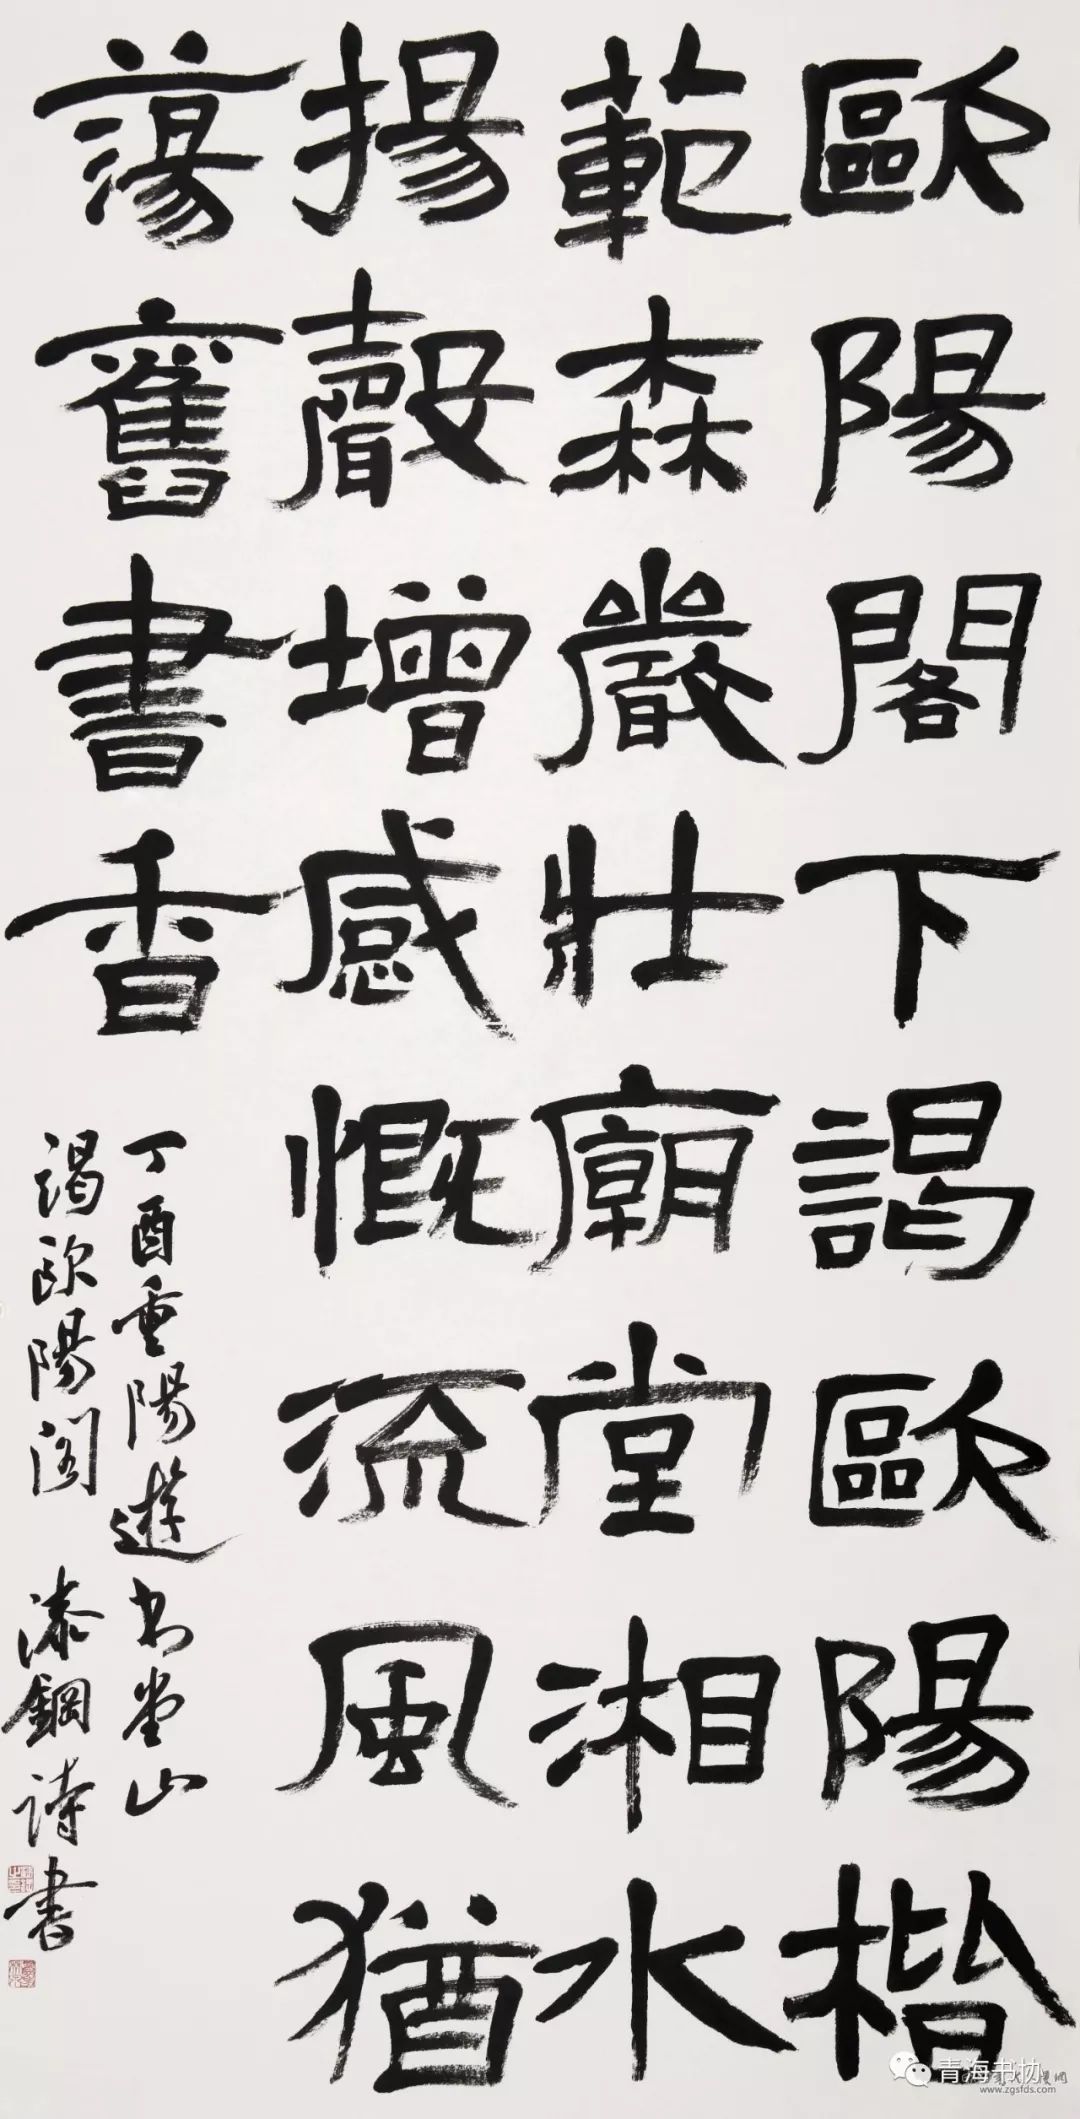 歐陽閣下謁歐陽楷
範森嚴壯廟堂湘水
揚聲增感慨流風猶
蕩舊書香
丁酉重陽遊书堂山
謁歐陽阁 漆鋼詩書
青海书协
www.zgsfds.com